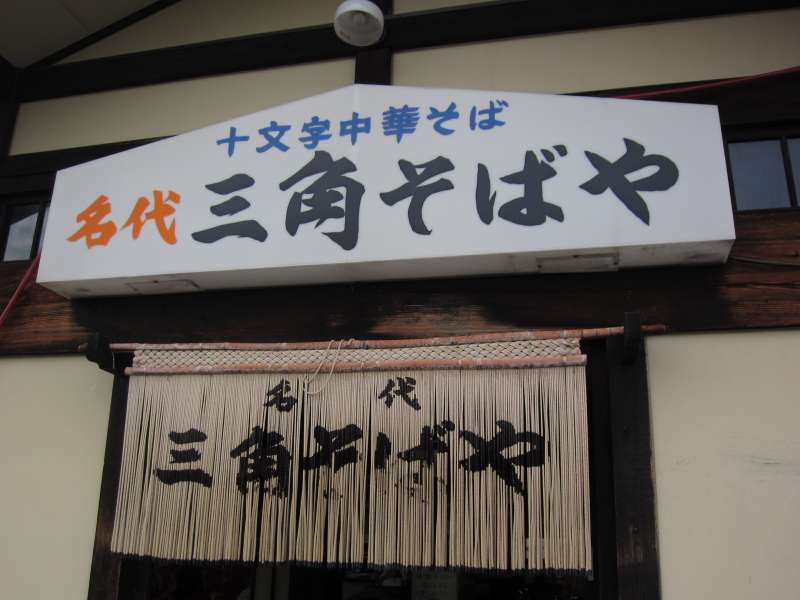 十文字中華そば
名代 三角そばや
名代
三角そばや